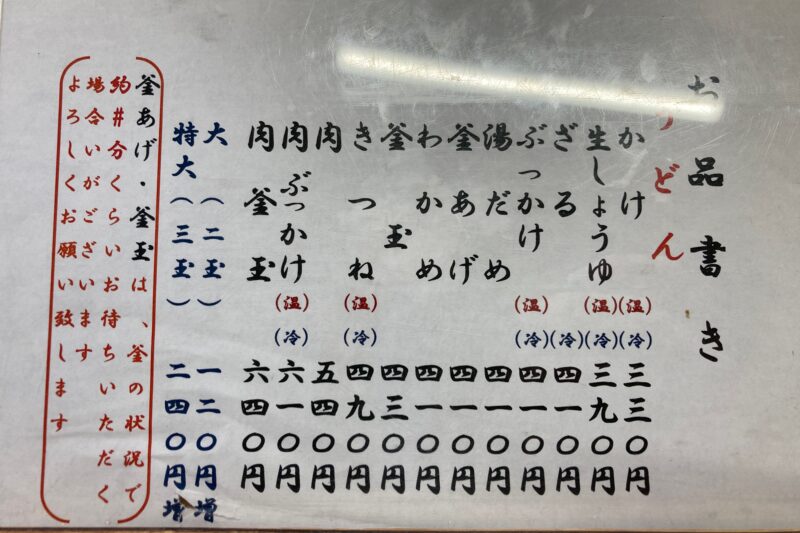 お品書き
うどん
かけ（温）（冷）三三〇円
生しょうゆ（温）（冷）三九〇円
ざる（冷）四一〇円
ぶっかけ（温）（冷）四一〇円
湯だめ四一〇円
釜あげ四一〇円
わかめ四一〇円
釜玉四三〇円
きつね（温）（冷）四九〇円
肉五四〇円
肉ぶっかけ（温）（冷）六一〇円
肉釜玉六四〇円
大（二玉）一二〇円増
特大（三玉）二四〇円増
（釜あげ・釜玉は、釜の状況で
約井分くらいお待ちいただく
場合いがございます
よろしくお願い致します）